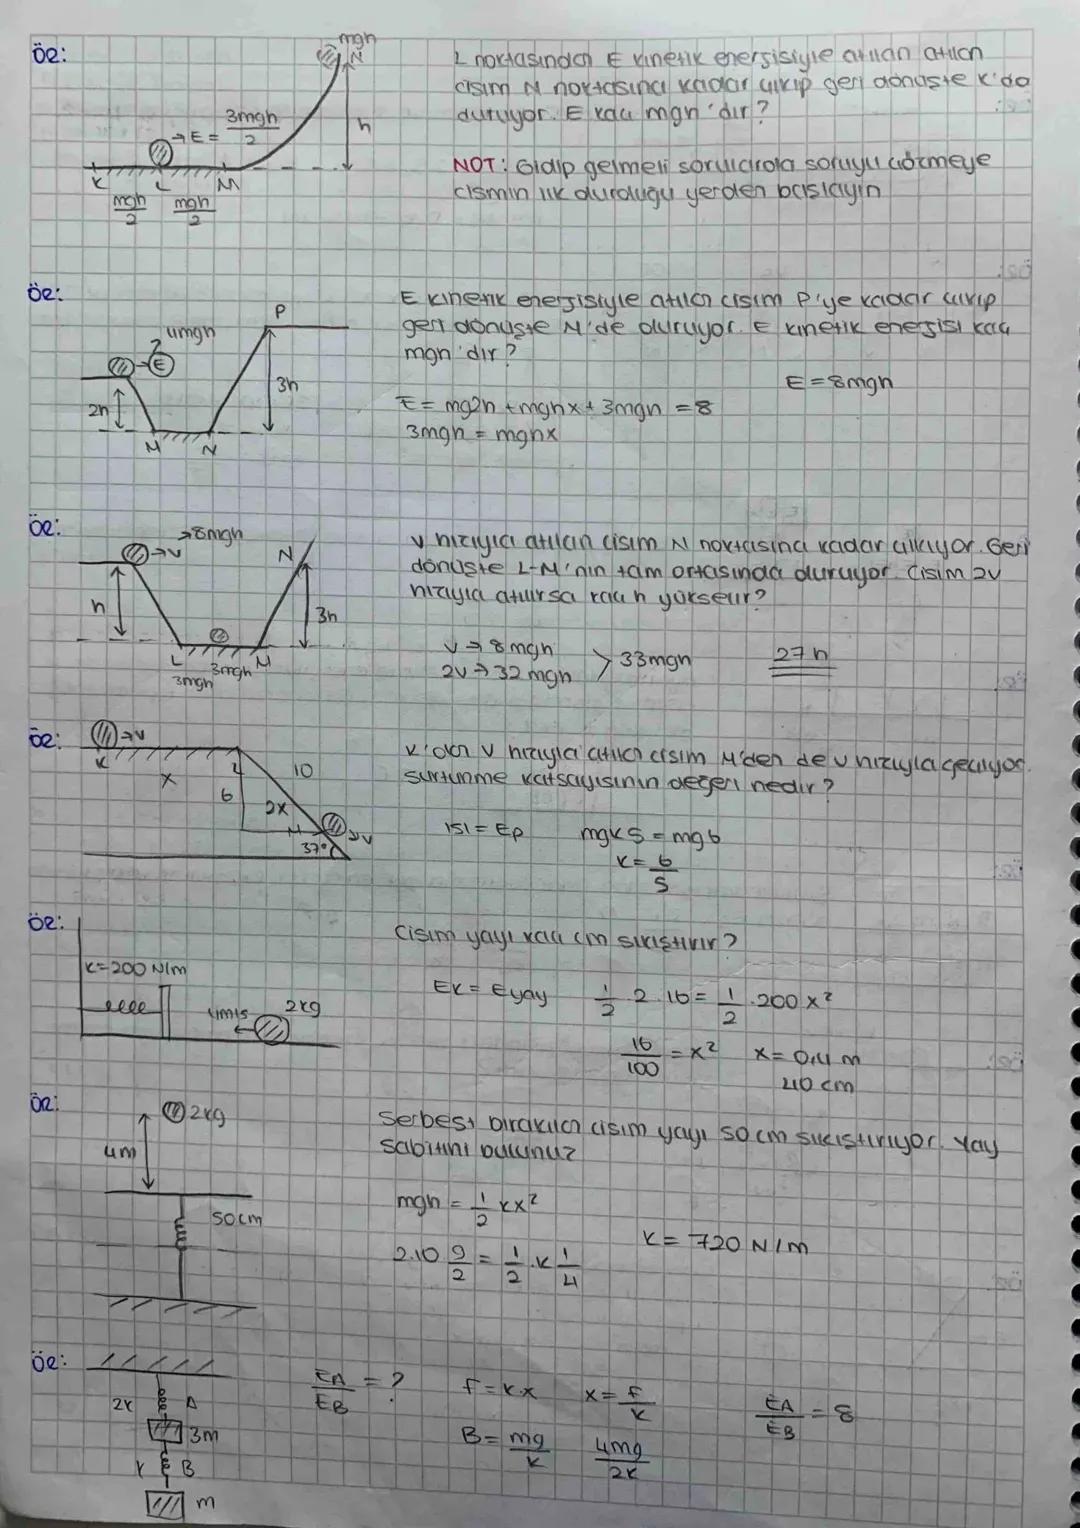 ör:
mgh
N
3mgh
E = 2
h
K
L
M
mgh mgh
2 2
L noktasından E kinetik enerjisiyle atılan atılan
cisim N noktasına kadar çıkıp geri dönüşte K'da
duruyor. E kaç mgh'dır?
NOT: Gidip gelmeli sorularda soruyu çözmeye
cismin ilk durduğu yerden başlayın
ör:
4mgh
E
P
2h
3h
M
N
E kinetik enerjisiyle atılan cisim P'ye kadar çıkıp
geri dönüşte M'de duruyor. E kinetik enerjisi kaç
mgh'dır?
E = 8mgh
E = mg2h + mghx + 3mgh = 8
3mgh = mghx
ör:
→8mgh
→v
N
h
3h
L
3mgh
M
3mgh
v hızıyla atılan cisim N noktasına kadar çıkıyor. Geri
dönüşte L-M'nin tam ortasında duruyor. Cisim 2v
hızıyla atılırsa kaç h yükselir?
v → 8mgh
2v → 32mgh
> 33mgh
27h
ör:
→v
K
x
L
10
6
2x
M
→v
37°
K'dan v hızıyla atılan cisim M'den de v hızıyla geçiyor.
sürtünme katsayısının değeri nedir?
ISI = Ep
mgkS = mg6
k = 6
5
ör:
k=200 N/m
4m/s
2kg
Cisim yayı kaç cm sıkıştırır?
Ek = Eyay
1/2 . 2 . 16 = 1/2 . 200 x²
16/100 = x²
x = 0,4 m
40 cm
ör:
2kg
4m
50cm
Serbest bırakılan cisim yayı 50 cm sıkıştırıyor. Yay
sabitini bulunuz
mgh = 1/2 kx²
2.10 9/2 = 1/2 . k 1/4
k = 720 N/m
ör:
2k
A
3m
k
B
m
EA/EB = ?
F = k.x
x = F/k
B = mg/k
4mg/2k
EA/EB = 8